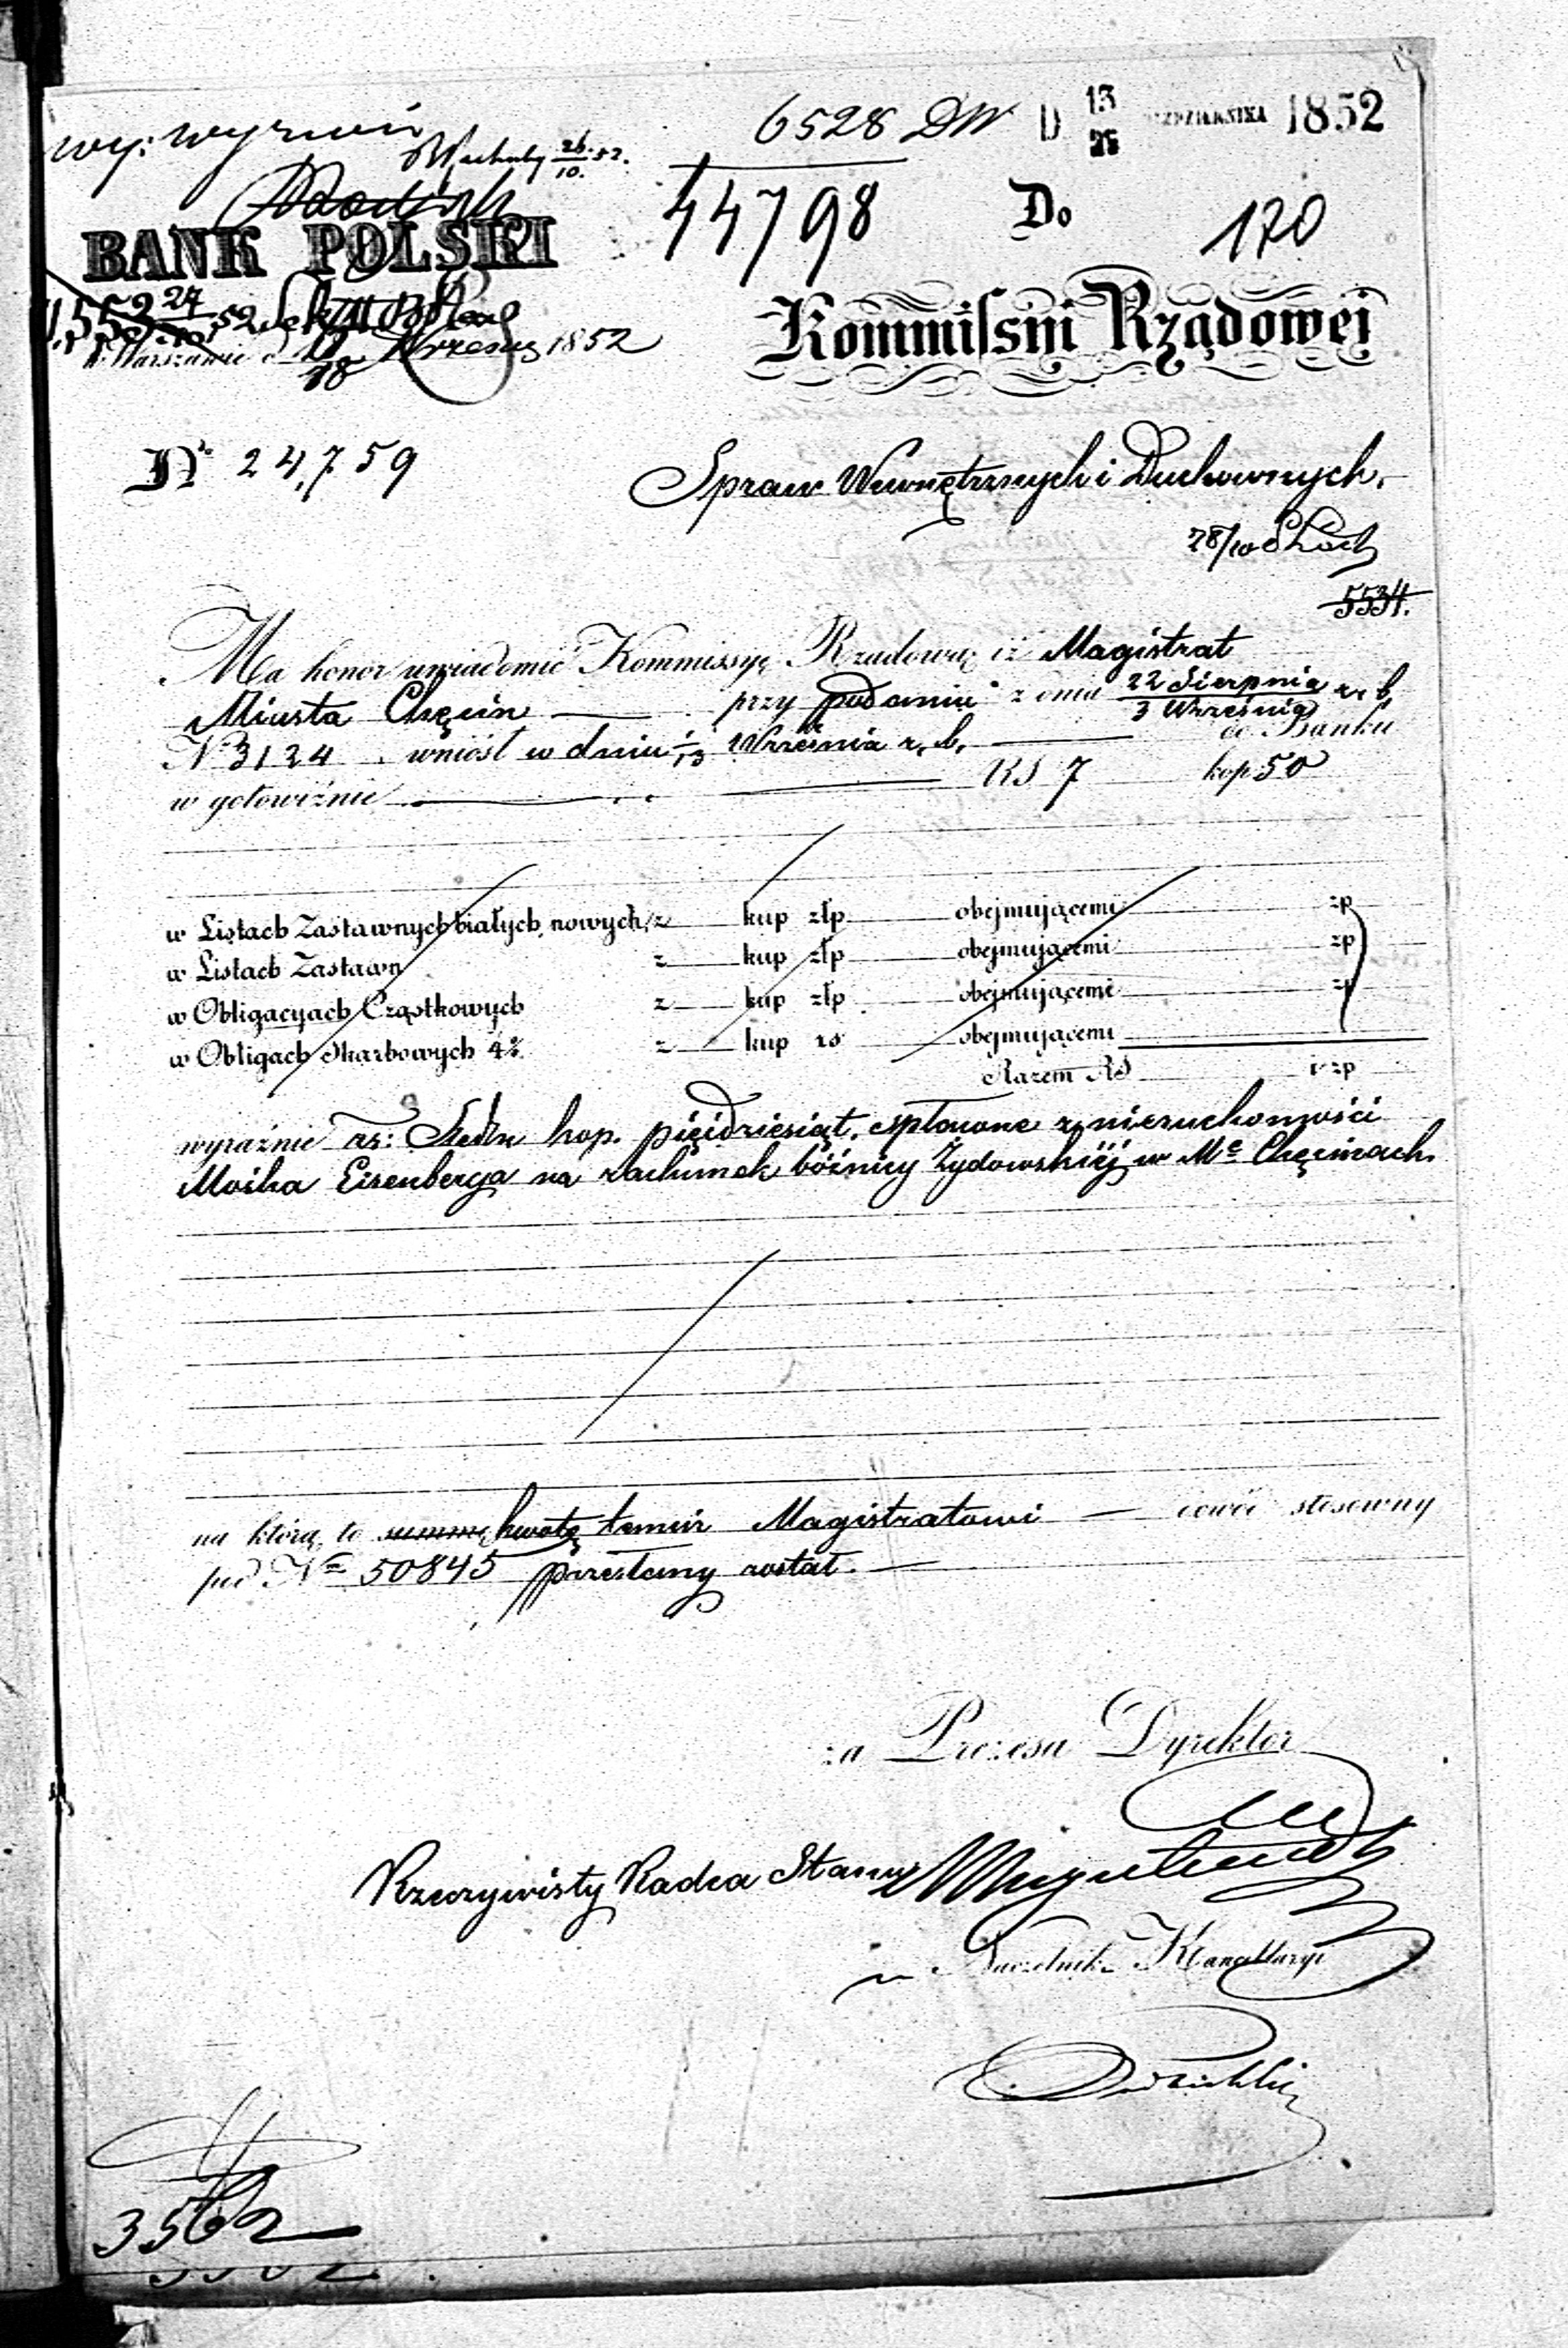 6528 DW D 13/25 PAŹDZIERNIKA 1852
44798 Do 170
BANK POLSKI
Kommissyi Rządowej
w Warszawie d 18 Wrześ 1852
Nº 24,759
Spraw Wewnętrznych i Duchownych.
28/10
5534.
Ma honor uwiadomić Kommissyę Rządową iż Magistrat
Miasta Chęcin przy podaniu z dnia 22 Sierpnia / 3 Września r. b.
Nº 3124 wniósł w dniu 1/13 Września r. b. do Banku
w gotowiźnie RS 7 kop 50
w Listach Zastawnych białych nowych z kup złp obejmującemi zp
w Listach Zastawn z kup złp obejmującemi zp
w Obligacyach Cząstkowych z kup złp obejmującemi zp
w Obligach Skarbowych 4% z kup rs obejmującemi
Razem RS i zp
wyraźnie rs: Siedm kop. pięćdziesiąt, spłacone z nieruchomości
Mośka Eisenberga na rachunek bóżnicy Żydowskiéj w Mc Chęcinach.
na którą to summę kwotę temuż Magistratowi dowód stosowny
pod Nm 50845 przesłany został.
za Prezesa Dyrektor
Rzeczywisty Radca Stanu
Naczelnik Kancellaryi
3562